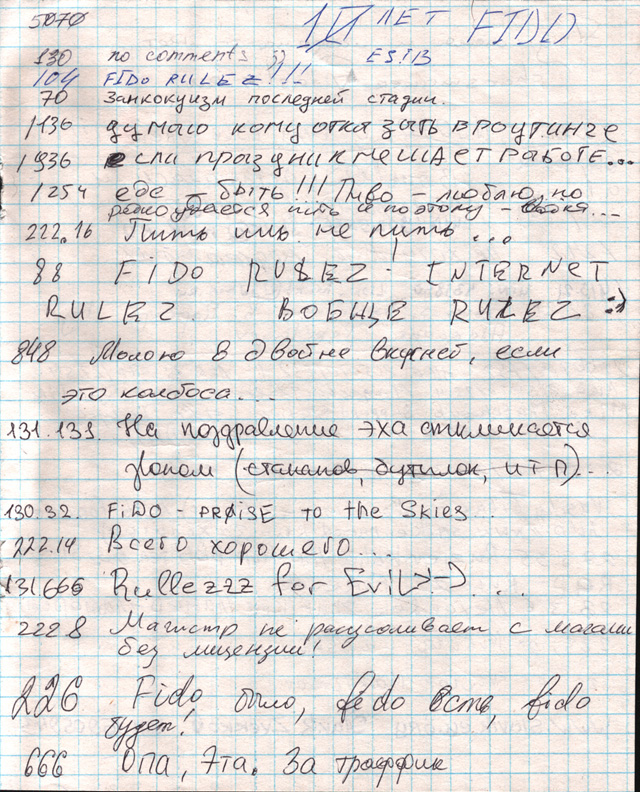 5070 10 ЛЕТ FIDO
130 no comments :)) ESIB
104 FIDO RULEZ!!!
70 Занкокуизм последней стадии.
1136 думаю кому отказать в роутинге
1936 если праздник мешает работе...
1254 еде – быть!!! Пиво – люблю, но
редко удается пить и поэтому –
222.16 Пить иль не пить...
88 FIDO RULEZ. INTERNET
RULEZ. ВОБЩЕ RULEZ :)
848 Молоко в двойне вкусней, если
это колбоса...
131.131. На поздравление эха откликается
звоном (стаканов, бутылок, и т п)...
130.32. FiDO - PRAISE to the Skies...
222.14 Всего хорошего...
131.666 Rullezzz for Evil>:-) ....
2228 Магистр не разговаривает с магами
без лицензии!
226 Fido было, fido есть, fido
будет!
666 Опа, Эта. За траффик